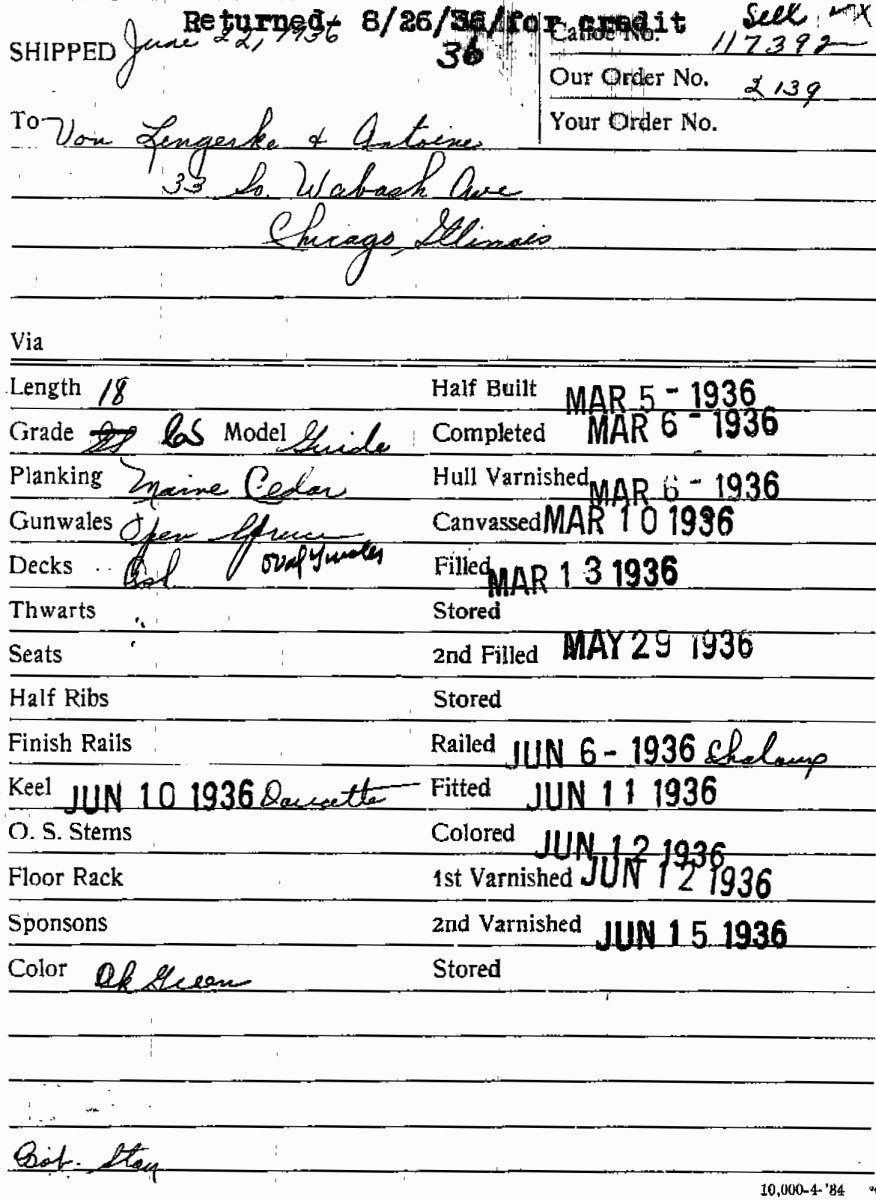 Returned- 8/26/36/for credit
SHIPPED June 22, 1936 36 Canoe No. 117392
Our Order No. 2139
To Von Lengerke & Antoine Your Order No.
33 So. Wabash Ave
Chicago, Illinois
Via
Length 18 Half Built MAR 5 - 1936
Grade CS Model Guide Completed MAR 6 - 1936
Planking Maine Cedar Hull Varnished MAR 6 - 1936
Gunwales Open Spruce Canvassed MAR 10 1936
Decks Oval Filled MAR 13 1936
Thwarts Stored
Seats 2nd Filled MAY 29 1936
Half Ribs Stored
Finish Rails Railed JUN 6 - 1936
Keel JUN 10 1936 Doucette Fitted JUN 11 1936
O. S. Stems Colored JUN 12 1936
Floor Rack 1st Varnished JUN 12 1936
Sponsons 2nd Varnished JUN 15 1936
Color Dk Green Stored
10,000-4-'84